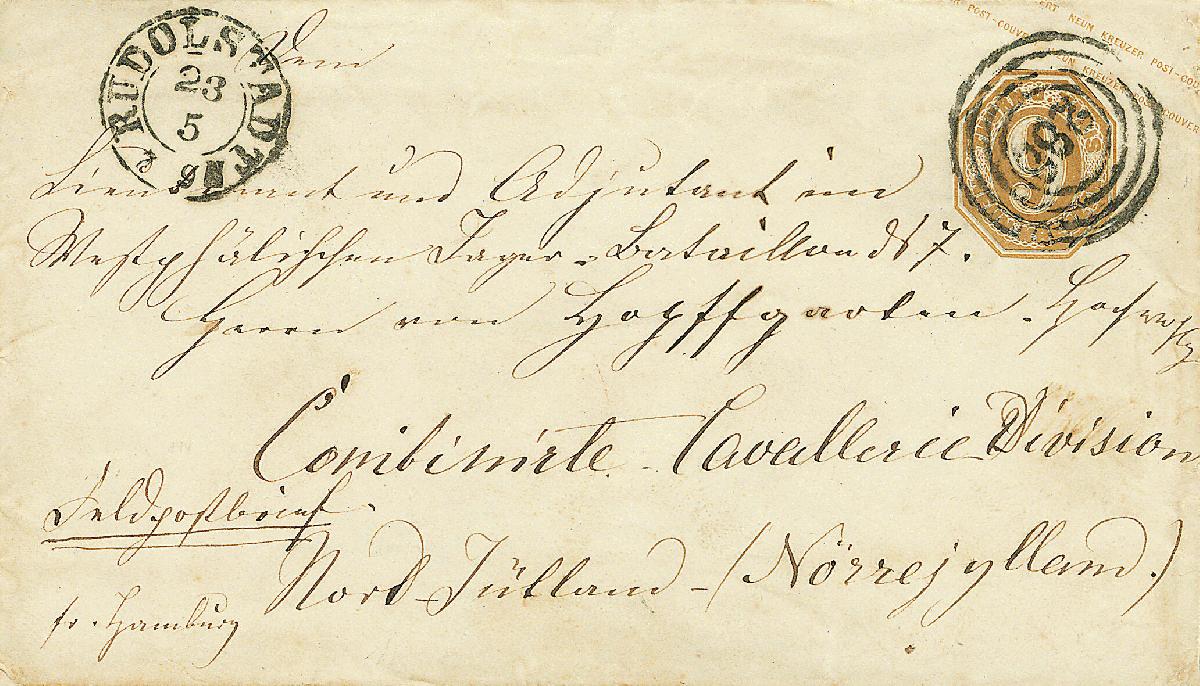 RUDOLSTADT
23
5
NEUN KREUZER POST-COUVERT
Dem
Lieutenant und Adjutant im
Westphälischen Jäger-Bataillon № 7.
Herrn von Hopffgarten. Hochwohlg
Combinirte Cavallerie Division
Feldpostbrief.
Nord-Jütland-(Nörrejylland.)
fr. Hamburg